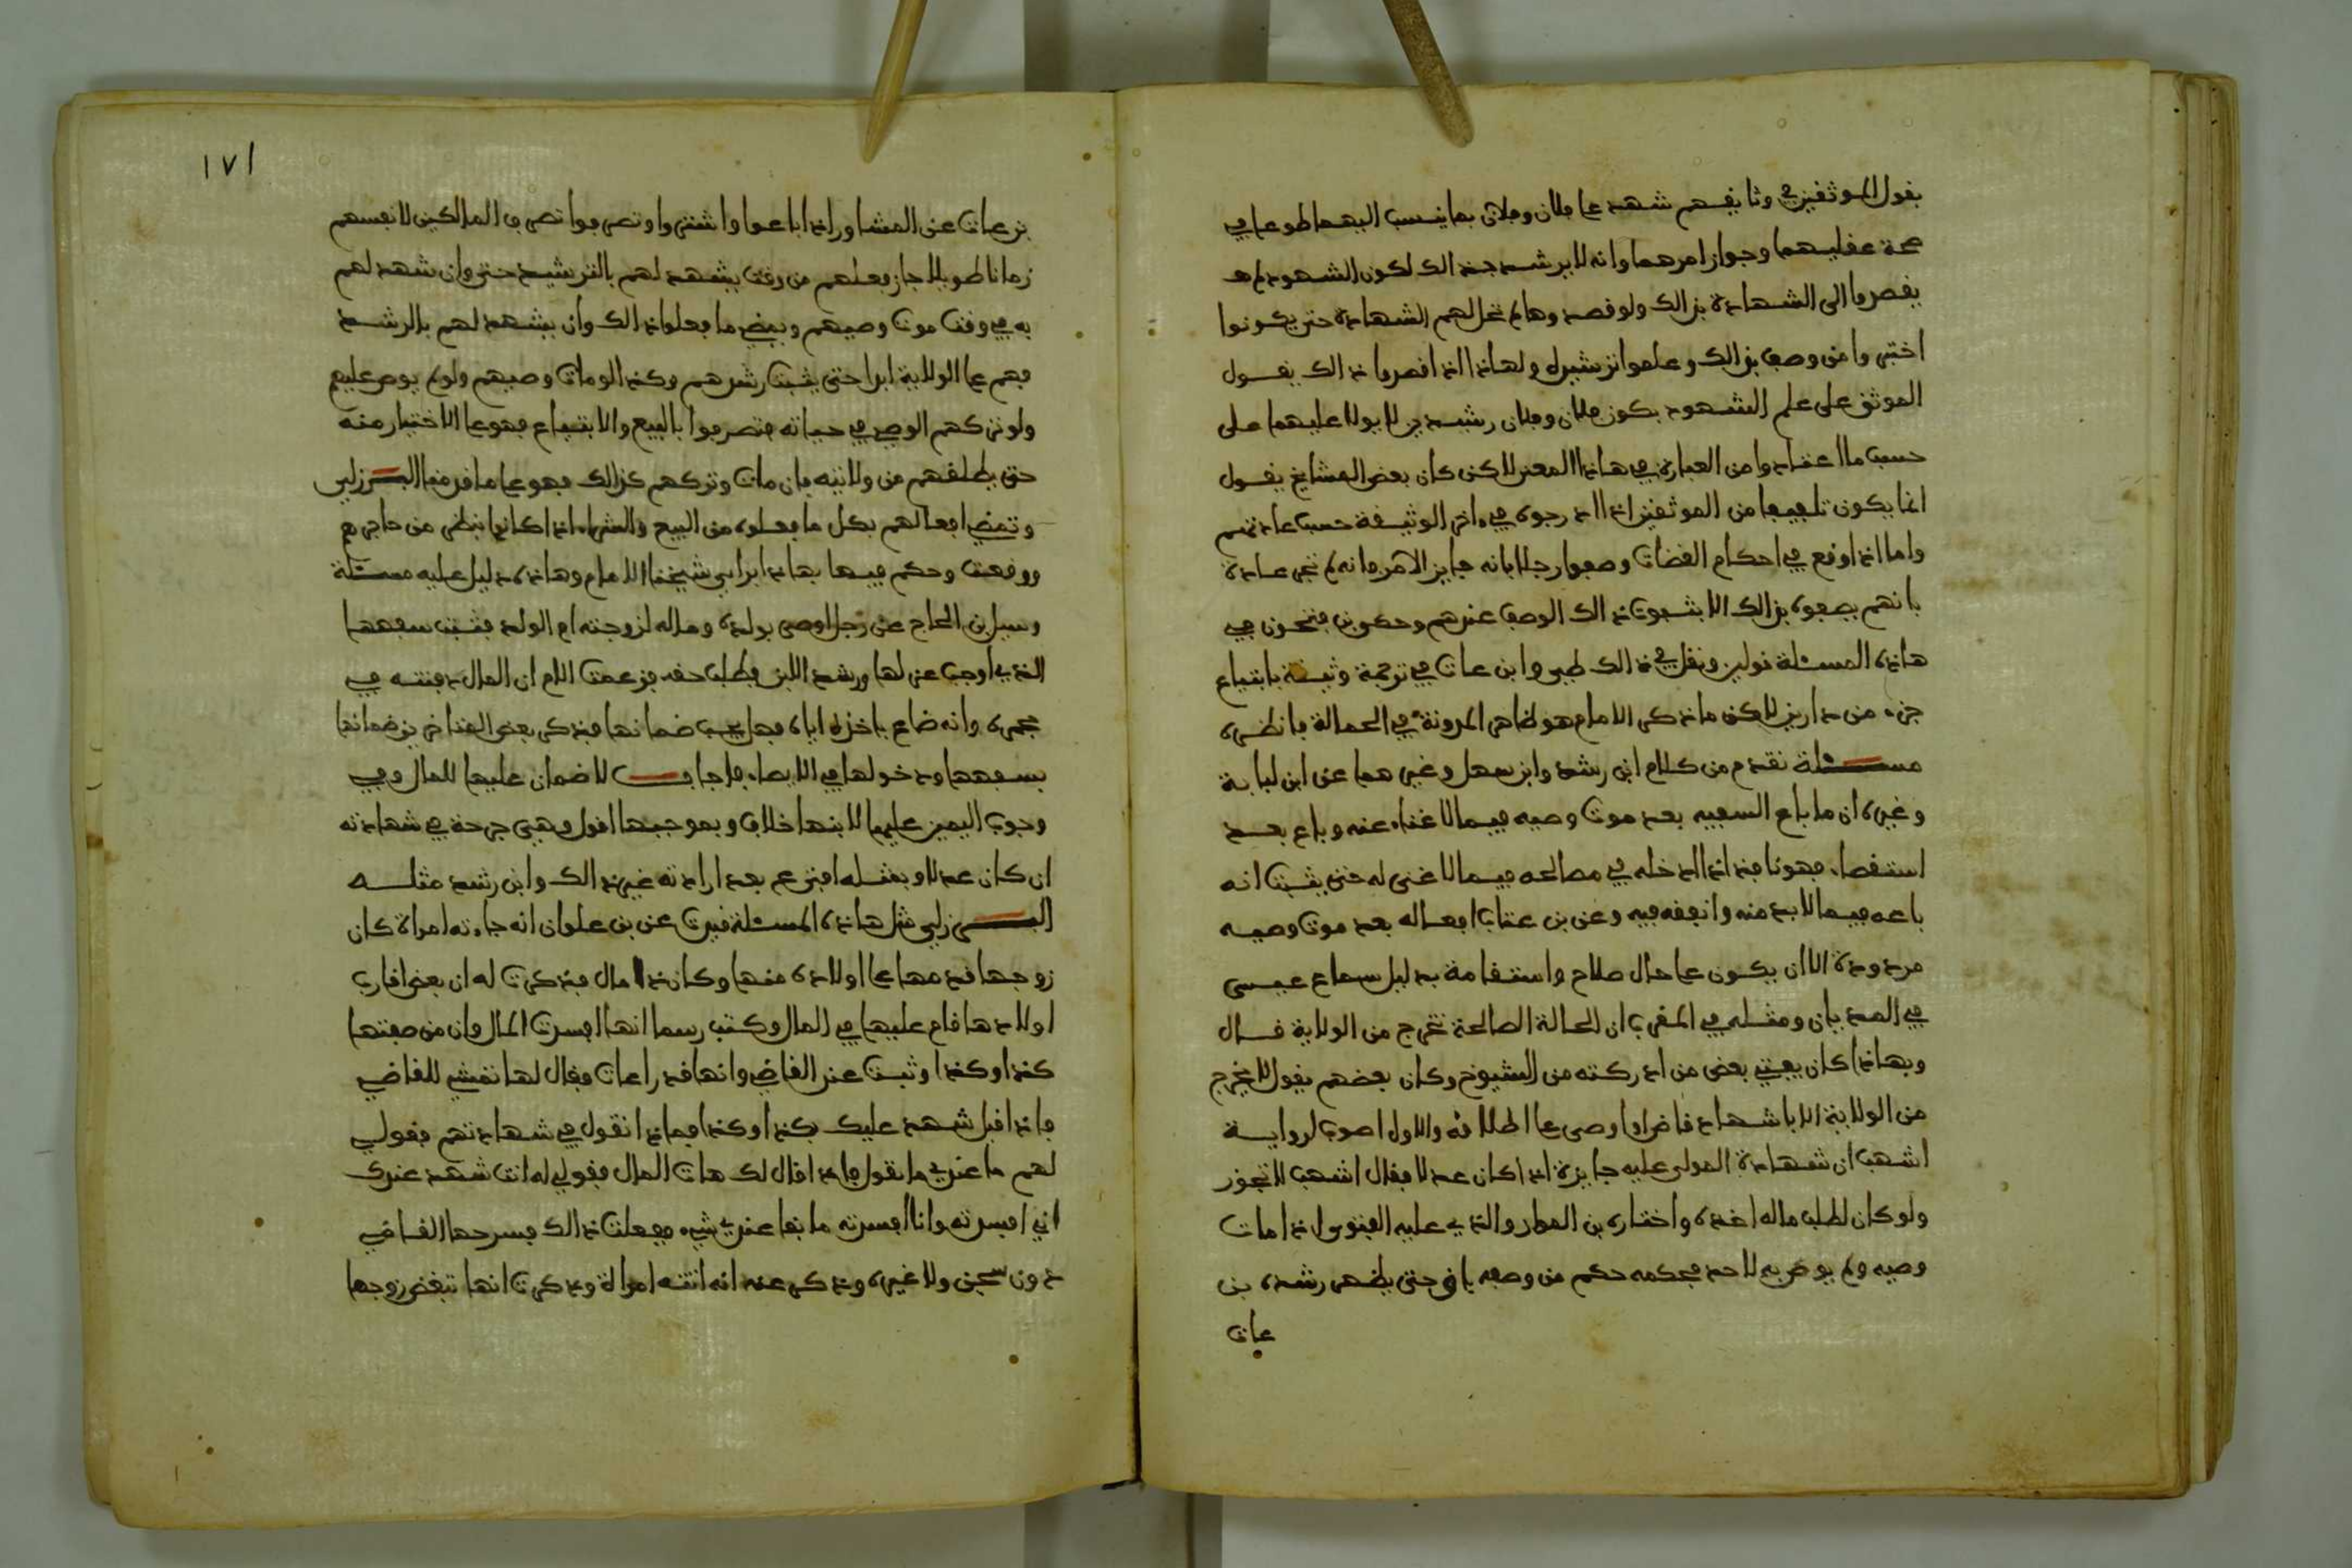 بقول الموثقين في وثايقهم شهد على فلان وفلان بما ينسب اليهما طوعا في
صحة عقليهما وجواز امرهما وانه لا يرشد بذالك لكون الشهود لم
يقصدوا الى الشهادة بذالك ولو قصدوها لم تحل لهم الشهادة حتى يكونوا
اختبروا من وصف بذالك وعلموا ترشيده ولهاذا اذا قصدوا ذالك يقول
الموثق على علم الشهود بكون فلان وفلان رشيدين لا يولا عليهما على
حسب ما اعتادوا من العبارة في هاذا المعنى لاكن كان بعض المشايخ يقول
انما يكون تلفيفا من الموثقين اذا اوردوه في اخر الوثيقة حسب عادتهم
واما اذا وقع في احكام القضات وصفوا رجلا بانه جايز الامر فانه لم تجر عادة
بانهم يصفوه بذالك الا بثبوت ذالك الوصف عندهم وحكو بن فتحون في
هاذه المسئلة قولين ونقل في ذالك طرر ابن عات في ترجمة وثيقة بابتياع
جزء من دارين لاكن ما ذكر الامام هو ظاهر المدونة في الحمالة فانظره
مسئلة تقدم من كلام ابن رشد وابن سهل وغيرهما عن ابن لبابة
وغيره ان ما باع السفيه بعد موت وصيه فيما لا غناء عنه وباع بعد
استقصاء فهو نافذ اذا ادخله في مصالحه فيما لا غنى له حتى يثبت انه
باعه فيما لا بد منه وانفقه فيه وعن بن عتاب افعاله بعد موت وصيه
مردودة الا ان يكون على حال صلاح واستقامة بدليل سماع عيسى
في المديان ومثله في المغرب ان الحالة الصالحة تخرج من الولاية قال
وبهاذا كان يفتي بعض من ادركته من الشيوخ وكان بعضهم يقول لا يخرج
من الولاية الا باشهاد قاض او وصي على اطلاقه والاول اصوب لرواية
اشهب ان شهادة المولى عليه جايزة اذا كان عدلا فقال اشهب لا تجوز
ولو كان لطلب ماله اخذه واختاره بن المواز والذي عليه الفتوى اذا مات
وصيه ولم يوص به لاحد فحكمه حكم من وصفه باق حتى يظهر رشده بن
عات
١٧١
بن عات عن المشاور اذا باعوا واشتروا وتصرفوا تصرف المالكين لانفسهم
زمانا طويلا جاز فعلهم من وقت يشهد لهم بالترشيد حتى وان شهد لهم
به في وقت موت وصيهم ويمضي ما فعلوا ذالك وان يشهد لهم بالرشد
فهم على الولاية ابدا حتى يثبت رشدهم وكذا لو مات وصيهم ولو لم يوص عليهم
ولو تركهم الوصي في حياته فتصرفوا بالبيع والابتياع فهو على الاختيار منه
حتى يطلقهم من ولايته فان مات وتركهم كذالك فهو على ما قدمنا البرزلي
وتمضي افعالهم بكل ما فعلوه من البيع والشراء اذا كانوا بنظر من حاجرهم
ووقعت وحكم فيها بهاذا براي شيخنا الامام وهاذه دليل عليه مسئلة
وسيل بن الحاج عن رجل اوصى بولده وماله لزوجته ام الولد فثبت سفهها
الذي اوجب عزلها ورشد الابن وطلب حقه فزعمت الام ان المال دفنته في
حجره وانه ضاع باخذه اياه فهل يجب ضمانها فذكر بعض القضاض بن ضمانها
بسفهها ودخولها في الايصاء فاجاب لا ضمان عليها للمال وفي
وجوب اليمين عليها لابنها خلاف وبموجبها اقول وهي جرحة في شهادته
ان كان عدلا وبمثله افتى عم بعد ارادته غير ذالك وابن رشد مثله
البرزلي مثل هاذه المسئلة فيرت عن بن علوان انه جاءته امراة كان
زوجها قدمها على اولاده منها وكان ذا مال فذكرت له ان بعض اقارب
اولادها قام عليها في المال وكتب رسما انها افسدت المال وان من صفتها
كذا وكذا وثبت عند القاضي وانها قد راعات فقال لها تمشي للقاضي
فاذا قيل شهد عليك بكذا وكذا فماذا تقول في شهادتهم فقولي
لهم ما عندي ما نقول فاذا قال لك هات المال فقولي له انت شهد عندك
اني افسدته وانا افسدته ما بقا عندي شيء ففعلت ذالك فسرحها القاضي
دون سجن ولا غيره وذكر عنه انه اتته امراة وذكرت انها تبغض زوجها